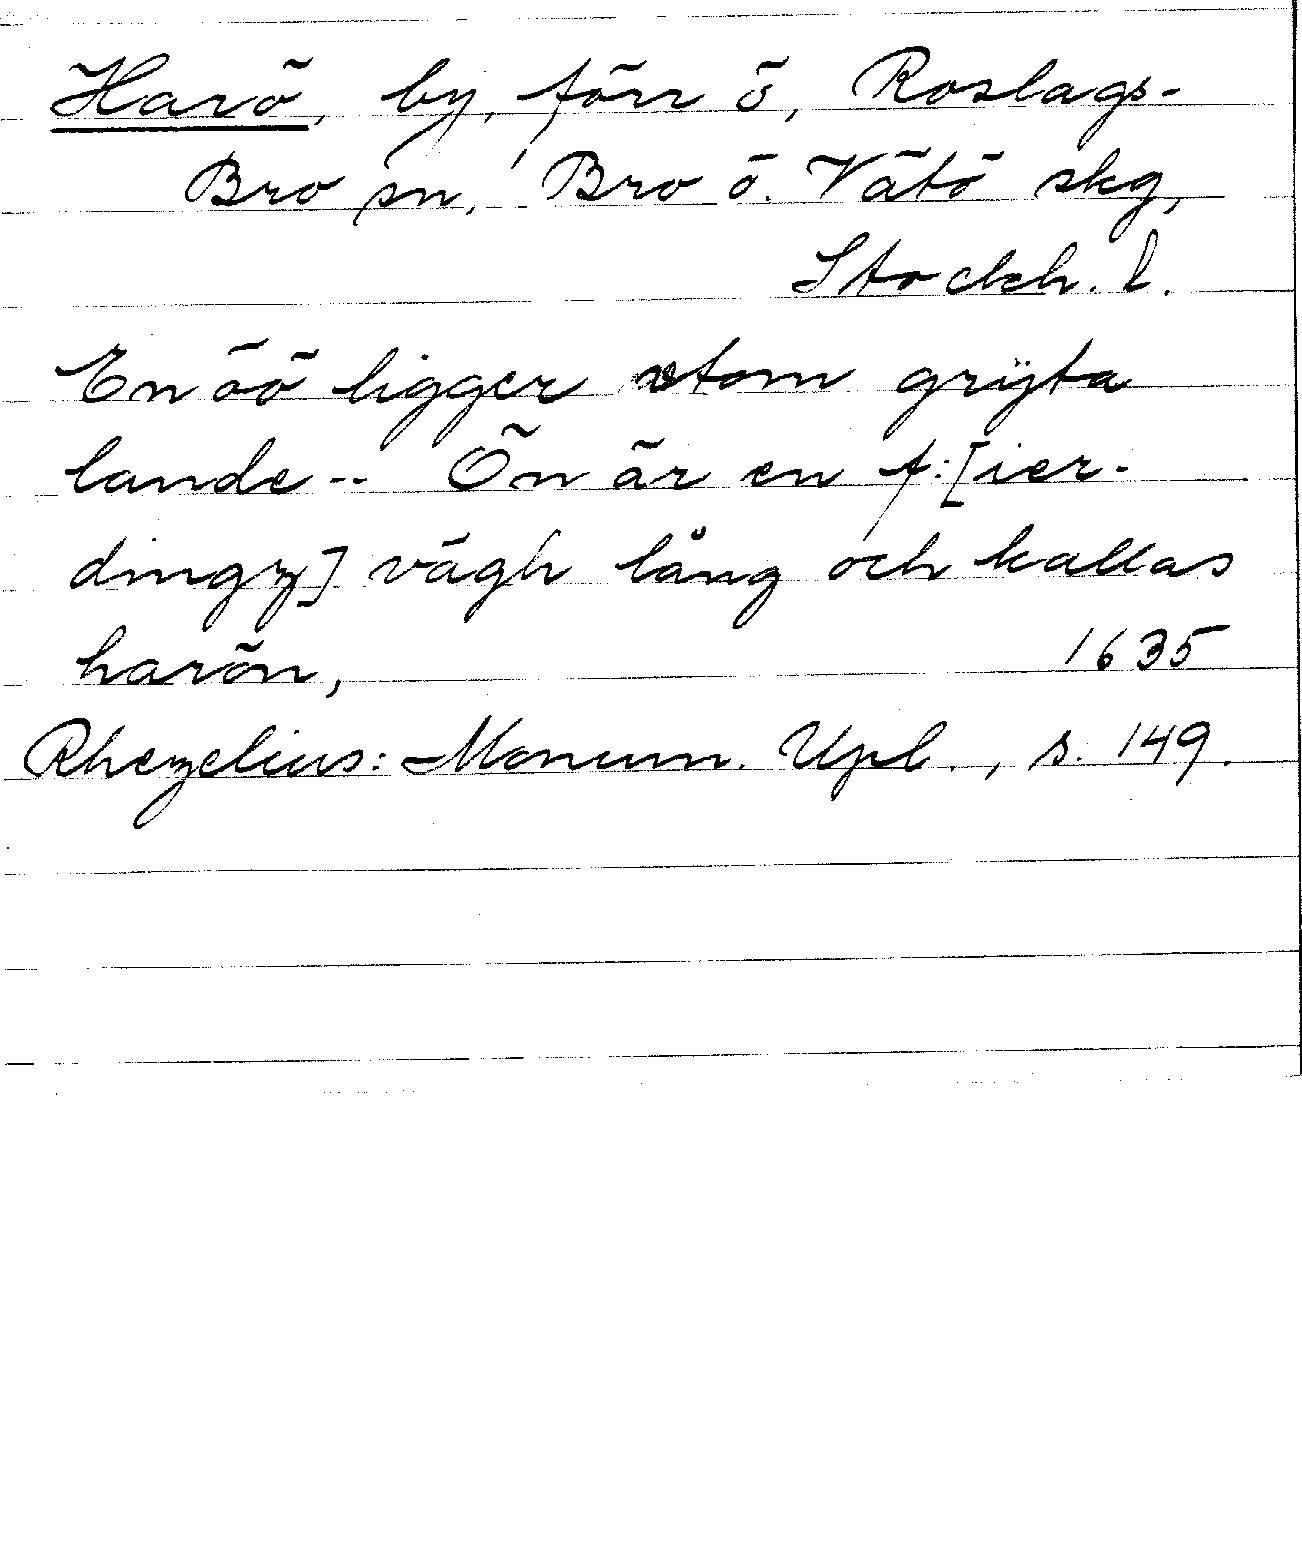 Harö, by, förr ö, Roslags-
Bro sn, Bro o. Vätö skg,
Stockh. l.
En öö ligger vtom grÿta
lande -- Ön är en f:[ier-
dingz] vägh lång och kallas
harön, 1635
Rhezelius: Monum. Upl., s. 149.